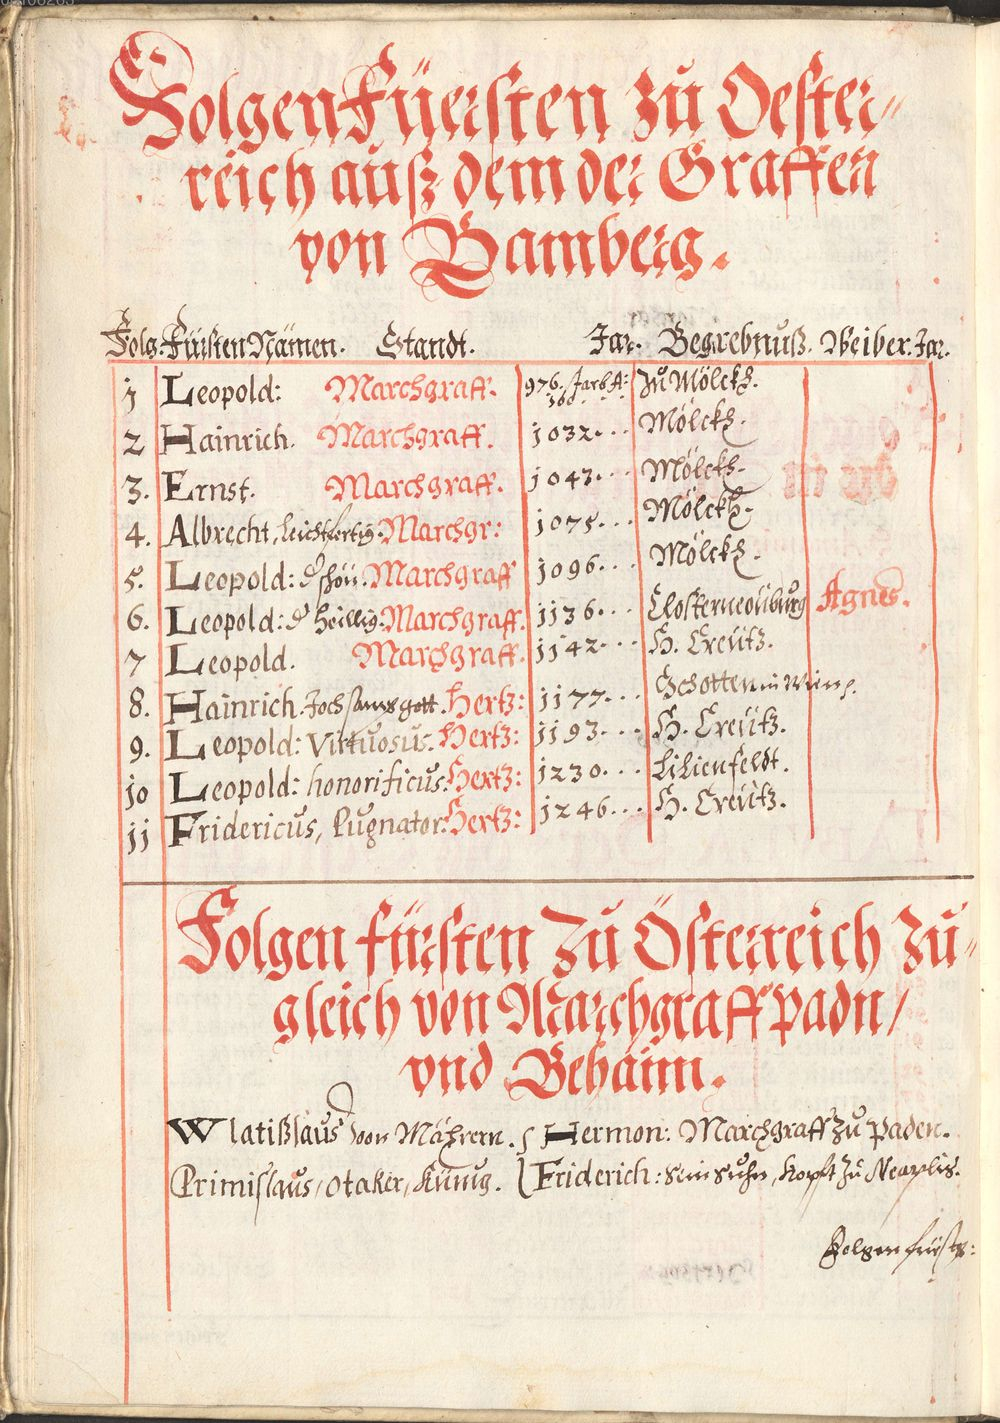 Folgen Füersten zu Oester-
reich auß dem der Graffen
von Bamberg.
Folg. Fürsten Nämen. Standt. Jar. Begrebnuß. Weiber. Jar.
1 Leopold: Marchgraff. 976. Zu Mölckh.
2 Hainrich. Marchgraff. 1032... Mölckh.
3. Ernst. Marchgraff. 1043... Mölckh.
4. Albrecht, leichtfertig. Marchgr: 1075... Mölckh.
5. Leopold: d' schön. Marchgraff 1096... Mölckh.
6. Leopold: d' heillig. Marchgraff. 1136... Closterneüburg Agnes.
7 Leopold. Marchgraff. 1142... H. Creütz.
8. Hainrich. Jochsamergott. Hertz: 1177... Schotten in Wien.
9. Leopold: Virtuosus. Hertz: 1193... H. Creütz.
10 Leopold: honorificus. Hertz: 1230... Lilienfeldt.
11 Fridericus, Pugnator. Hertz: 1246... H. Creütz.
Folgen fürsten Zu Österreich Zu-
gleich von Marchgraff Padn/
vnd Behäim.
Wlatißlaus von Mährern. Hermon: Marchgraff zu Paden.
Primislaus, Otaker, Künig. Friderich: sein suhn, kopft zu Neaplis.
Folgen fürst: